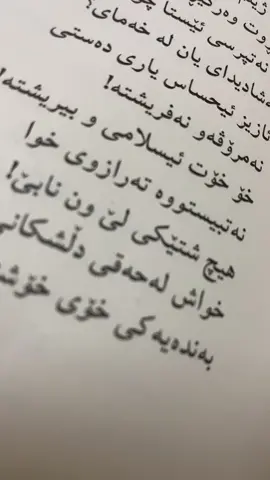 نەتپرسی ئێستا
شادیدای یان لە خەمای؟
ئازیز ئیحساس یاری دەستی
نەمرۆڤەو نەفریشتە!
خۆ خۆت ئیسلامی و بیریشتە!
نەتبیستووە تەرازوی خوا
هیچ شتێکی لێ ون نابێ!
خواش لەحەقی دڵشکانی
بەندەیەکی خۆی